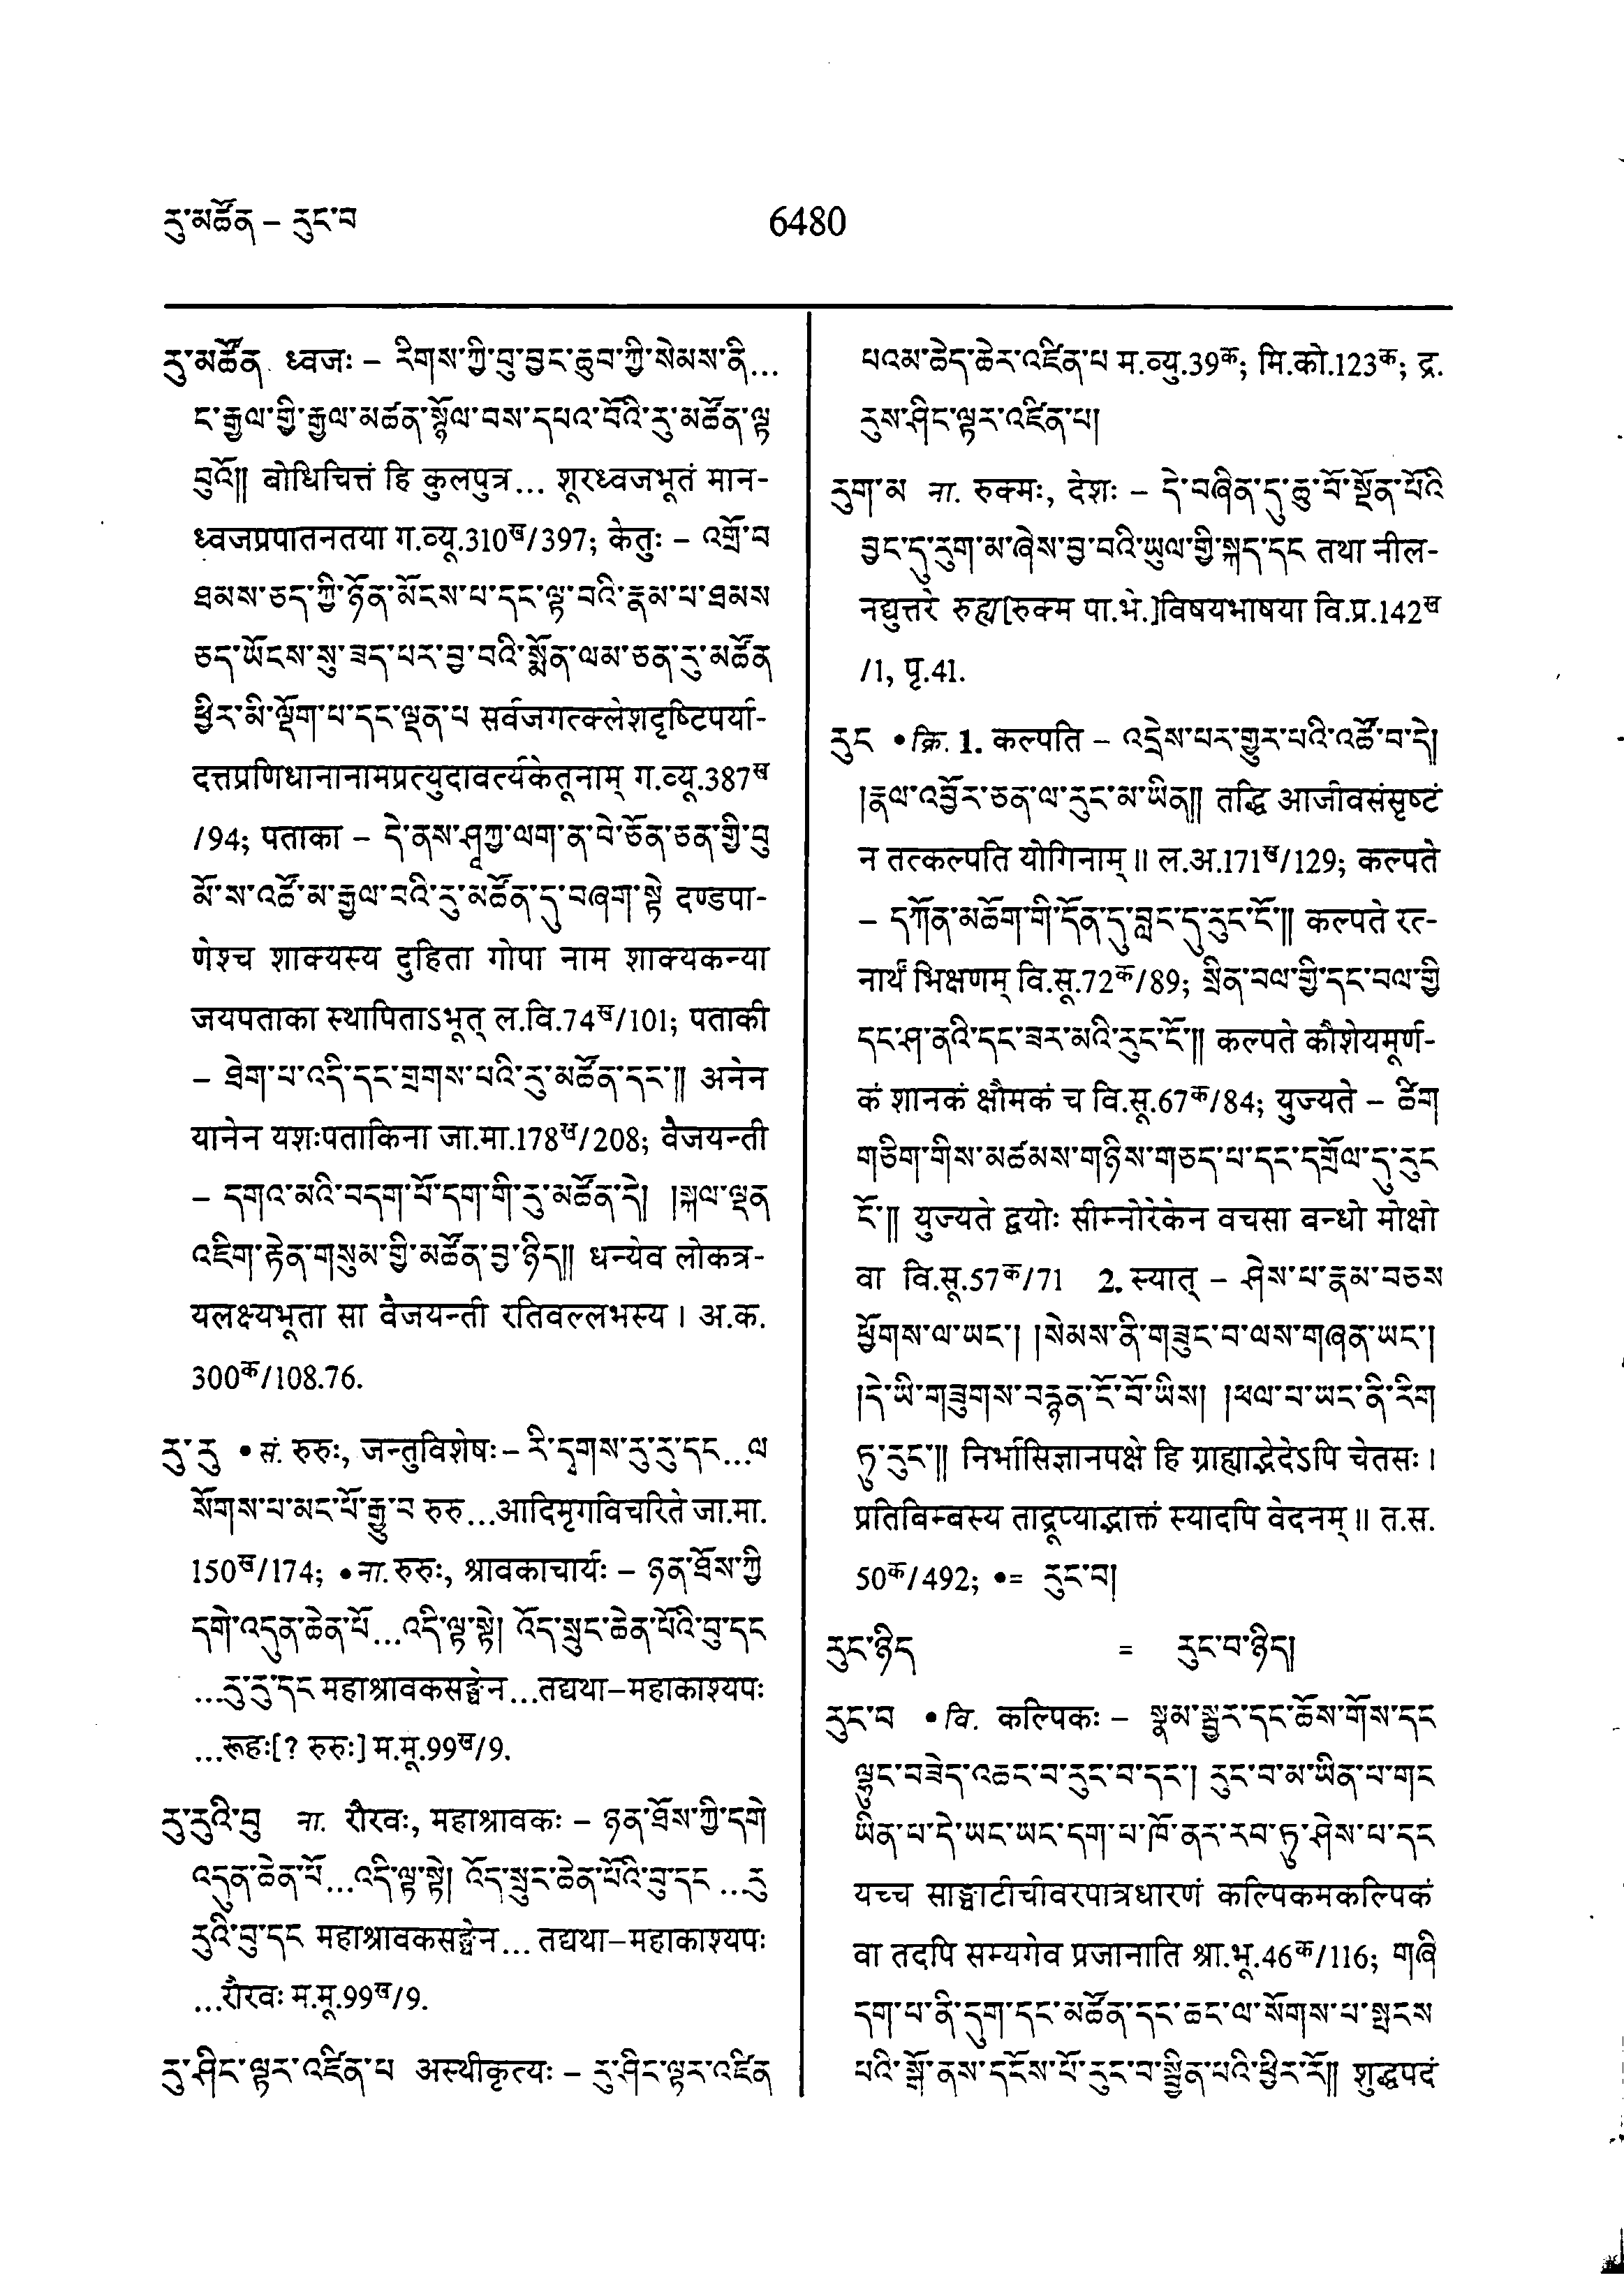 རུ་མཚོན – རུང་བ
6480
རུ་མཚོན. ध्वजः – རིགས་ཀྱི་བུ་བྱང་ཆུབ་ཀྱི་སེམས་ནི...
ང་རྒྱལ་གྱི་རྒྱལ་མཚན་སྙོལ་བས་དཔའ་བོའི་རུ་མཚོན་ལྟ
བུའོ།། बोधिचित्तं हि कुलपुत्र... शूरध्वजभूतं मान-
ध्वजप्रपातनतया ग.व्यू.310ख/397; केतुः – འགྲོ་བ
ཐམས་ཅད་ཀྱི་ཉོན་མོངས་པ་དང་ལྟ་བའི་རྣམ་པ་ཐམས
ཅད་ཡོངས་སུ་ཟད་པར་བྱ་བའི་སྨོན་ལམ་ཅན་རུ་མཚོན
ཕྱིར་མི་ལྡོག་པ་དང་ལྡན་པ सर्वजगत्क्लेशदृष्टिपर्या-
दत्तप्रणिधानानामप्रत्युदावर्त्यकेतूनाम् ग.व्यू.387ख
/94; पताका – དེ་ནས་ཤཱཀྱ་ལག་ན་བེ་ཅོན་ཅན་གྱི་བུ
མོ་ས་འཚོ་མ་རྒྱལ་བའི་རུ་མཚོན་དུ་བཞག་སྟེ दण्डपा-
णेश्च शाक्यस्य दुहिता गोपा नाम शाक्यकन्या
जयपताका स्थापिताऽभूत् ल.वि.74ख/101; पताकी
– ཐེག་པ་འདི་དང་གྲགས་པའི་རུ་མཚོན་དང་།། अनेन
यानेन यशःपताकिना जा.मा.178ख/208; वैजयन्ती
– དགའ་མའི་བདག་པོ་དག་གི་རུ་མཚོན་དེ། །སྐལ་ལྡན
འཇིག་རྟེན་གསུམ་གྱི་མཚོན་བྱ་ཉིད།། धन्येव लोकत्र-
यलक्ष्यभूता सा वैजयन्ती रतिवल्लभस्य । अ.क.
300क/108.76.
རུ་རུ •सं. रुरुः, जन्तुविशेषः – རི་དྭགས་རུ་རུ་དང...ལ
སོགས་པ་མང་པོ་རྒྱུ་བ रुरु...आदिमृगविचरिते जा.मा.
150ख/174; •ना. रुरुः, श्रावकाचार्यः – ཉན་ཐོས་ཀྱི
དགེ་འདུན་ཆེན་པོ...འདི་ལྟ་སྟེ། འོད་སྲུང་ཆེན་པོའི་བུ་དང
...རུ་རུ་དང महाश्रावकसङ्घेन...तद्यथा–महाकाश्यपः
...रूहः[? रुरुः] म.मू.99ख/9.
རུ་རུའི་བུ ना. रौरवः, महाश्रावकः – ཉན་ཐོས་ཀྱི་དགེ
འདུན་ཆེན་པོ...འདི་ལྟ་སྟེ། འོད་སྲུང་ཆེན་པོའི་བུ་དང ...རུ
རུའི་བུ་དང महाश्रावकसङ्घेन... तद्यथा–महाकाश्यपः
...रौरवः म.मू.99ख/9.
རུ་ཤིང་ལྟར་འཛིན་པ अस्थीकृत्यः – རུ་ཤིང་ལྟར་འཛིན
པའམ་ཆེད་ཆེར་འཛིན་པ म.व्यु.39क; मि.को.123क; द्र.
རུས་ཤིང་ལྟར་འཛིན་པ།
རུག་མ ना. रुक्मः, देशः – དེ་བཞིན་དུ་ཆུ་བོ་སྔོན་པོའི
བྱང་དུ་རུག་མ་ཞེས་བྱ་བའི་ཡུལ་གྱི་སྐད་དང तथा नील-
नद्युत्तरे रुह्म[रुक्म पा.भे.]विषयभाषया वि.प्र.142ख
/1, पृ.41.
རུང •क्रि. 1. कल्पति – འདྲེས་པར་གྱུར་པའི་འཚོ་བ་དེ།
།རྣལ་འབྱོར་ཅན་ལ་རུང་མ་ཡིན།། तद्धि आजीवसंसृष्टं
न तत्कल्पति योगिनाम् ॥ ल.अ.171ख/129; कल्पते
– དཀོན་མཆོག་གི་དོན་དུ་བླང་དུ་རུང་ངོ་།། कल्पते रत्-
नार्थं भिक्षणम् वि.सू.72क/89; སྲིན་བལ་གྱི་དང་བལ་གྱི
དང་ཤ་ནའི་དང་ཟར་མའི་རུང་ངོ་།། कल्पते कौशेयमूर्ण-
कं शानकं क्षौमकं च वि.सू.67क/84; युज्यते – ཚིག
གཅིག་གིས་མཚམས་གཉིས་གཅད་པ་དང་དགྲོལ་དུ་རུང
ངོ་།། युज्यते द्वयोः सीम्नोरेकेन वचसा बन्धो मोक्षो
वा वि.सू.57क/71 2. स्यात् – ཤེས་པ་རྣམ་བཅས
ཕྱོགས་ལ་ཡང་། །སེམས་ནི་གཟུང་བ་ལས་གཞན་ཡང་།
།དེ་ཡི་གཟུགས་བརྙན་ངོ་བོ་ཡིས། །ཕལ་བ་ཡང་ནི་རིག
ཏུ་རུང་།། निर्भासिज्ञानपक्षे हि ग्राह्याद्भेदेऽपि चेतसः ।
प्रतिबिम्बस्य ताद्रूप्याद्भाक्तं स्यादपि वेदनम् ॥ त.स.
50क/492; •= རུང་བ།
རུང་ཉིད = རུང་བ་ཉིད།
རུང་བ •वि. कल्पिकः – སྣམ་སྦྱར་དང་ཆོས་གོས་དང
ལྷུང་བཟེད་འཆང་བ་རུང་བ་དང་། རུང་བ་མ་ཡིན་པ་གང
ཡིན་པ་དེ་ཡང་ཡང་དག་པ་ཁོ་ནར་རབ་ཏུ་ཤེས་པ་དང
यच्च साङ्घाटीचीवरपात्रधारणं कल्पिकमकल्पिकं
वा तदपि सम्यगेव प्रजानाति श्रा.भू.46क/116; གཞི
དག་པ་ནི་དུག་དང་མཚོན་དང་ཆང་ལ་སོགས་པ་སྤངས
པའི་སྒོ་ནས་དངོས་པོ་རུང་བ་སྦྱིན་པའི་ཕྱིར་རོ།། शुद्धपदं